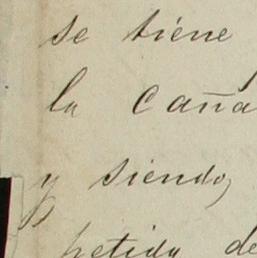 se tiéne
la caña
y siendo,
petida de